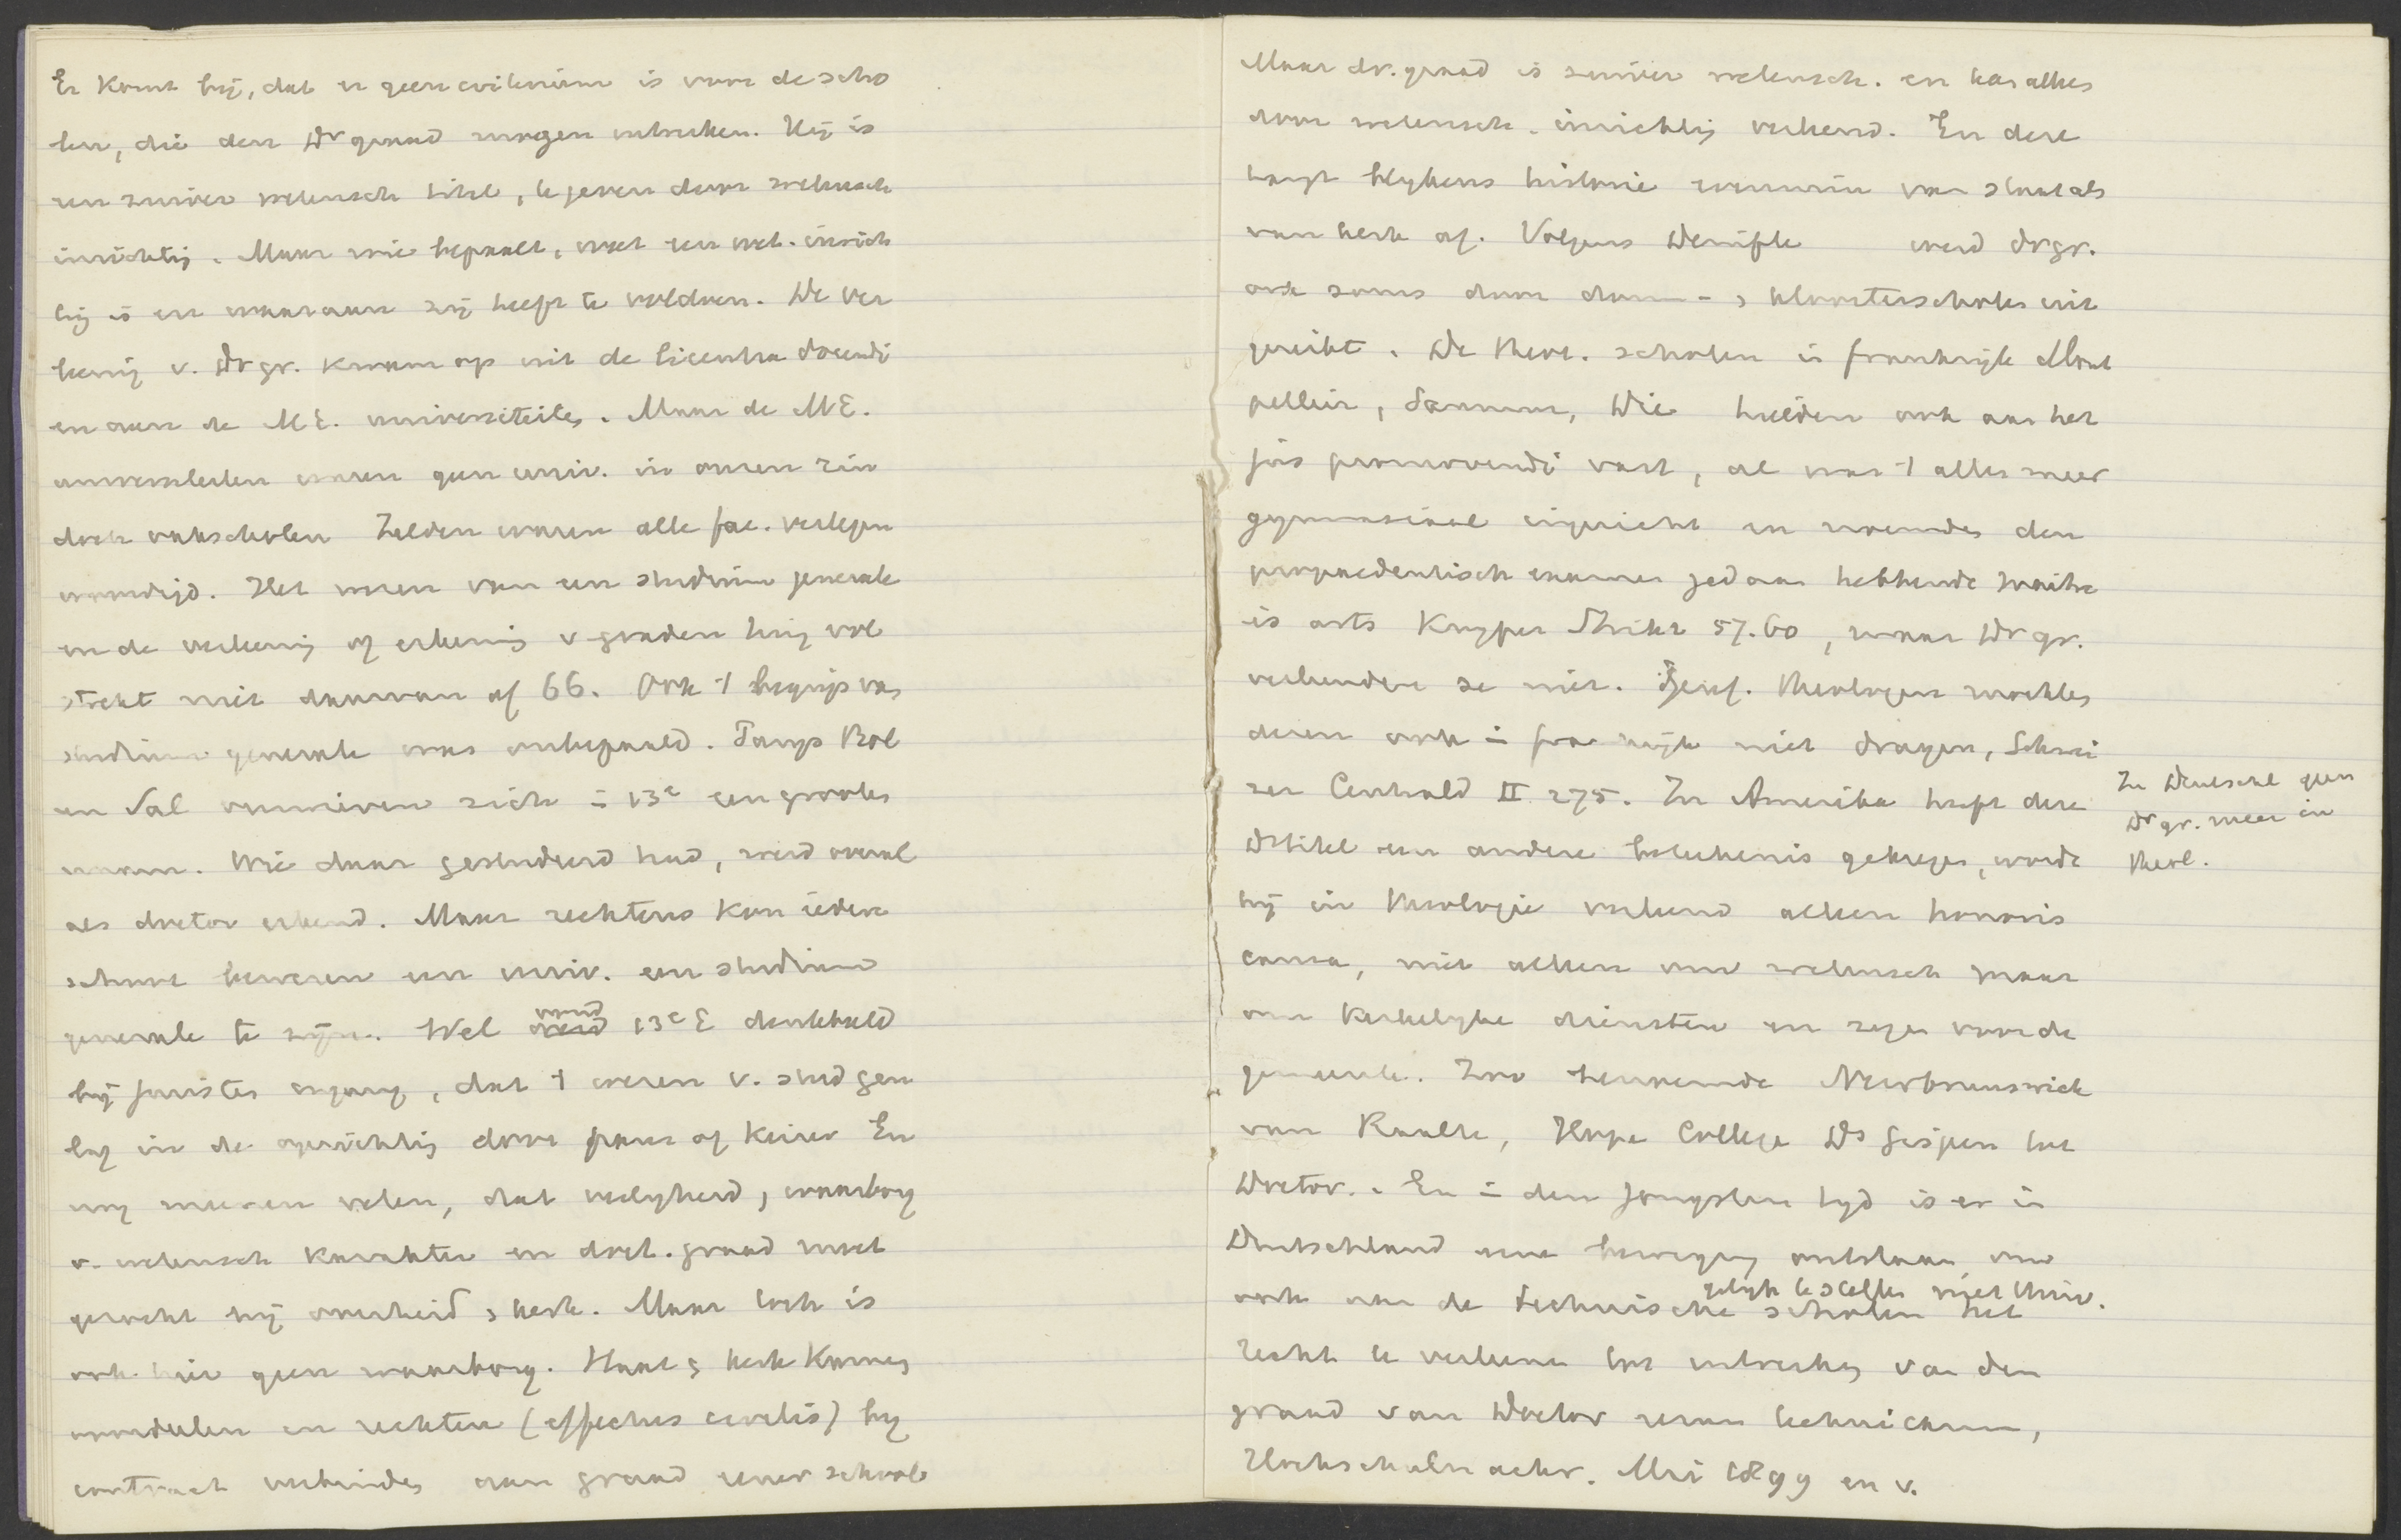 Er komt bij, dat er geen criterium is voor de scho
len, die den Dr graad mogen uitreiken. Hij is
een zuiver wetensch titel, te geven door wetensch
inrichtig. Maar wie bepaalt, wat een wet. inrich
tig is en waaraan zij heeft te voldoen. De ver
lenig v. Dr gr. kwam op uit de licentia docendi
en aan de M.E. universiteites. Maar de M.E.
universiteiten waren geen univ. in onzen zin
doch vakscholen Zelden waren alle fac. vertegen
woordigd. Het wezen van een studium generale
en de verlenig of erkenig v graden hing vol
strekt niet daarvan af 66. Ook 't begrip van
studium generale was onbepaald. Parijs Bol
en Sal verwierven zich i 13e een grooten
naam. Wie daar gestudeerd had, werd overal
als doctor erkend. Maar rechtens kon iedere
school beweren een univ. een studium
generale te zijn. Wel werd 13e E denkbeeld
bij juristen ingang, dat 't wezen v. stud gen
lag in de oprichtig door paus of keizer En
nog meenen velen, dat veiligheid, waarborg
v. wetensch karakter en doct. graad moet
gezocht bij overheid, kerk. Maar toch is
ook hier geen waarborg. Staat, kerk kunnen
voordeelen en rechten (effectus civilis) bij
contract verbinden aan graad eener school
Maar dr. graad is zuiver wetensch. en kan alleen
door wetensch. inrichtig verleend. En deze
hangt blijkens historie evenmin van staat als
van kerk af. Volgens Denifle werd dr gr.
ook soms door dom-, kloosterscholen uit
gereikt. De theol. scholen in Frankrijk Mont
pellier, Saumur, Die hielden ook aan het
jus promovendi vast, al was 't alles meer
gymnasiaal ingericht en noemden den
propaedeutisch examen gedaan hebbende
is arts Kuyper Strikt 57.60, maar Dr gr.
verleenden ze niet. Geref. theologen mochten
dezen ook i frankrijk niet dragen, Schwei
zer Centrald II 275. In Amerika heeft deze
Drtitel een andere beteekenis gekregen, wordt
hij in theologie verleend alleen honoris
causa, niet alleen om wetensch maar
om kerkelijke diensten en zegen voor de
gemeente. Zoo benoemde Newbrunswick
van Raalte, Hope College Ds Gispen tot
Doctor. En i den jongsten tijd is er in
Duitschland eene beweging ontstaan om
gelijk te stellen met Univ.
ook aan de technische scholen het
recht te verleenen tot uitreiken van den
graad van Doctor rerum technicarum,
Hochschulnachr. Mei 1899 en v.
In Deutschl geen
Dr gr. meer in
theol.